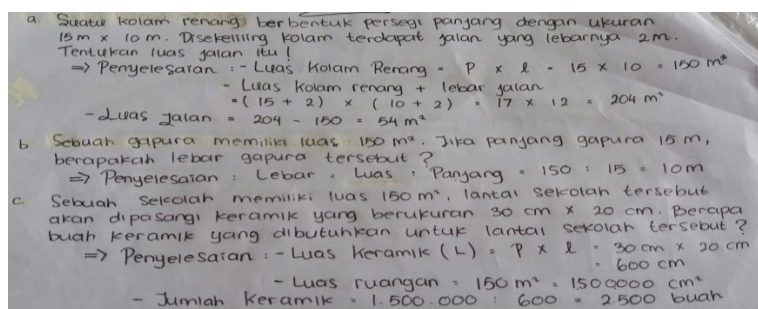 a. Suatu kolam renang berbentuk persegi panjang dengan ukuran
15 m x 10 m. Disekeliling kolam terdapat jalan yang lebarnya 2 m.
Tentukan luas jalan itu !
=> Penyelesaian : - Luas Kolam Renang = P x l = 15 x 10 = 150 m²
- Luas kolam renang + lebar jalan
= ( 15 + 2 ) x ( 10 + 2 ) = 17 x 12 = 204 m²
- Luas jalan = 204 - 150 = 54 m²
b Sebuah gapura memiliki luas 150 m². Jika panjang gapura 15 m,
berapakah lebar gapura tersebut ?
=> Penyelesaian : Lebar = Luas : Panjang = 150 : 15 = 10 m
c. Sebuah sekolah memiliki luas 150 m², lantai sekolah tersebut
akan dipasangi keramik yang berukuran 30 cm x 20 cm. Berapa
buah keramik yang dibutuhkan untuk lantai sekolah tersebut ?
=> Penyelesaian : - Luas Keramik (L) = P x l = 30 cm x 20 cm
= 600 cm
- Luas ruangan = 150 m² = 1500000 cm²
- Jumlah keramik = 1.500.000 : 600 = 2.500 buah